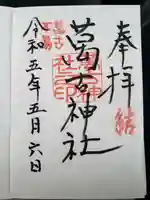 奉拝
結
葛古神社
令和五年五月六日